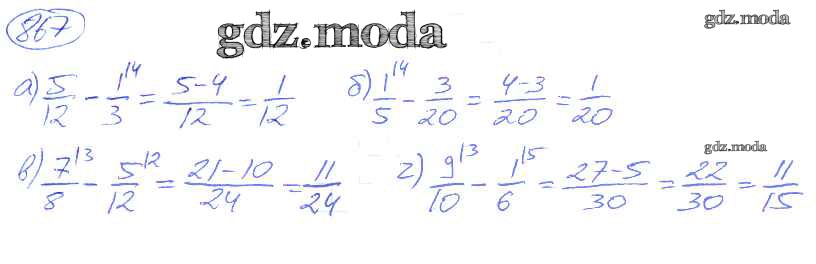 867 gdz.moda gdz.moda
а) 5/12 - 1/3 |4 = 5-4/12 = 1/12 б) 1/5 |4 - 3/20 = 4-3/20 = 1/20
gdz.moda
в) 7/8 |3 - 5/12 |2 = 21-10/24 = 11/24 г) 9/10 |3 - 1/6 |5 = 27-5/30 = 22/30 = 11/15